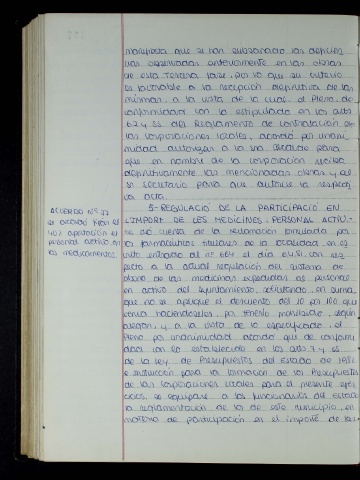 manifiesta que se han subsanado las deficien
cias observadas anteriormente en las obras
de esta Tercera Fase, por lo que su criterio
es favorable a la recepción definitiva de las
mismas, a la vista de lo cual, el Pleno de
conformidad con lo estipulado en los arts
62 y 63 del Reglamento de Contratación de
las Corporaciones Locales, acordó por unani
midad autorizar a la Sra. Alcalde para
que en nombre de la Corporación reciba
definitivamente las mencionadas obras y al
Sr. Secretario para que autorice la respecti
va acta.
5-REGULACIO DE LA PARTICIPACIÓ EN
L'IMPORT DE LES MEDICINES: PERSONAL ACTIU.-
Se dió cuenta de la reclamación formulada por
los farmacéuticos titulares de la localidad, en es
crito entrado al nº 664 el día con res
pecto a la actual regulación del sistema de
abono de las medicinas expedidas a personal
en activo del Ayuntamiento, solicitando, en suma,
que no se aplique el descuento del 10 por 100 que
venía haciéndoseles por
alegan, y a la vista de lo especificado, el
Pleno por unanimidad acordó que de conformi
dad con lo establecido en los arts. 7 y
de la Ley de Presupuestos del Estado de 1981
e Instrucción para la formación de los Presupuestos
de las Corporaciones Locales para el presente ejer
cicio, se equipare a los funcionarios del Estado
la reglamentación de los de este municipio, en
materia de participación en el importe de las
ACUERDO Nº 27
se acordó fijar el
40% aportación el
personal activo en
los medicamentos.